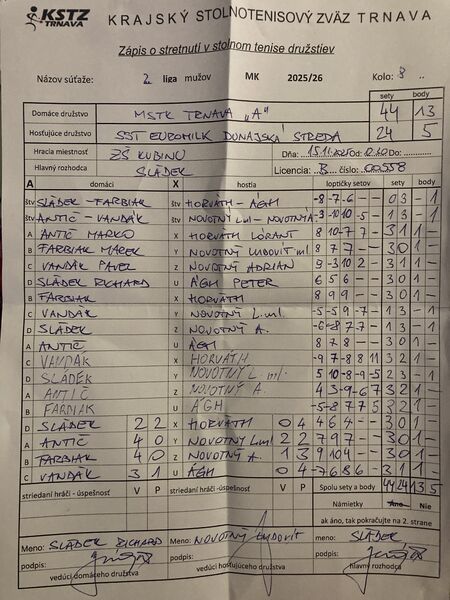 KSTZ TRNAVA KRAJSKÝ STOLNOTENISOVÝ ZVÄZ TRNAVA
Zápis o stretnutí v stolnom tenise družstiev
Názov súťaže: 2 liga mužov MK 2025/26 Kolo: 8 ..
sety body
Domáce družstvo MSTK TRNAVA „A" 44 13
Hosťujúce družstvo SST EUROMILK DUNAJSKÁ STREDA 24 5
Hracia miestnosť ZŠ KUBINU Dňa: 15.11.2025 od do
Hlavný rozhodca SLÁDEK Licencia B číslo: 00558
A domáci X hostia loptičky setov sety body
štv SLÁDEK - FARBIAK štv HORVÁTH - ÁGH -8 -7 -6 - - 0 3 - 1
štv ANTIČ - VANDÁK štv NOVOTNÝ L.ml - NOVOTNÝ A -3 -10 10 -5 - 1 3 - 1
A ANTIČ MARKO X HORVÁTH LORANT 8 10 -7 7 - 3 1 1 -
B FARBIAK MAREK Y NOVOTNÝ ĽUDOVÍT ml. 8 7 7 - - 3 0 1 -
C VANDÁK PAVEL Z NOVOTNÝ ADRIAN 9 -3 10 2 - 3 1 1 -
D SLÁDEK RICHARD U ÁGH PETER 6 5 6 - - 3 0 1 -
B FARBIAK X HORVÁTH 8 9 9 - - 3 0 1 -
C VANDÁK Y NOVOTNÝ L.ml. -5 -5 9 -7 - 1 3 - 1
D SLÁDEK Z NOVOTNÝ A. -6 -8 7 -7 - 1 3 - 1
A ANTIČ U ÁGH 8 7 8 - - 3 0 1 -
C VANDÁK X HORVÁTH -9 7 -8 8 11 3 2 1 -
D SLÁDEK Y NOVOTNÝ L. ml. 5 10 -8 -9 -5 2 3 - 1
A ANTIČ Z NOVOTNÝ A. 4 3 -9 -6 7 3 2 1 -
B FARBIAK U ÁGH -5 -8 7 7 5 3 2 1 -
D SLÁDEK 2 2 X HORVÁTH 0 4 4 6 4 - - 3 0 1 -
A ANTIČ 4 0 Y NOVOTNÝ L.ml 2 2 7 9 7 - - 3 0 1 -
B FARBIAK 4 0 Z NOVOTNÝ A. 1 3 9 10 4 - - 3 0 1 -
C VANDÁK 3 1 U ÁGH 0 4 -7 6 8 6 - 3 1 1 -
striedaní hráči - úspešnosť V P striedaní hráči - úspešnosť V P Spolu sety a body 44 24 13 5
Námietky Áno Nie
ak áno, tak pokračujte na 2. strane
Meno: SLÁDEK RICHARD Meno: NOVOTNÝ ĽUDOVÍT Meno: SLÁDEK
podpis: podpis: podpis:
vedúci domáceho družstva vedúci hosťujúceho družstva hlavný rozhodca